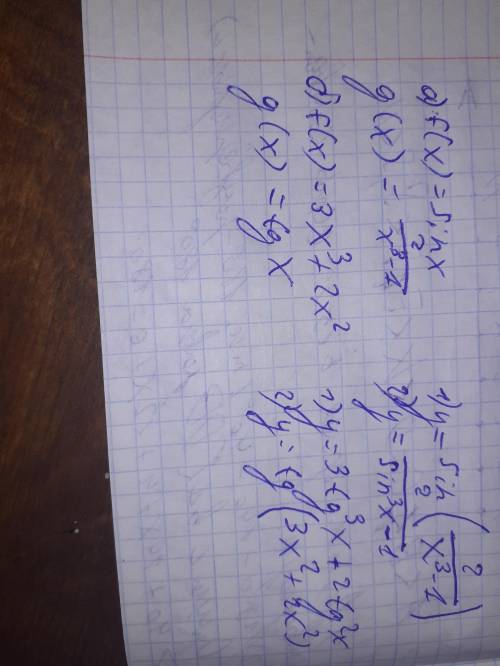 a) f(x) = sin x
g(x) = 2/(x³-1)
б) f(x) = 3x³+2x²
g(x) = tg x
1) y = sin(2/(x³-1))
2) y = 2/(sin³x-1)
1) y = 3tg³x+2tg²x
2) y = tg(3x²+2x²)